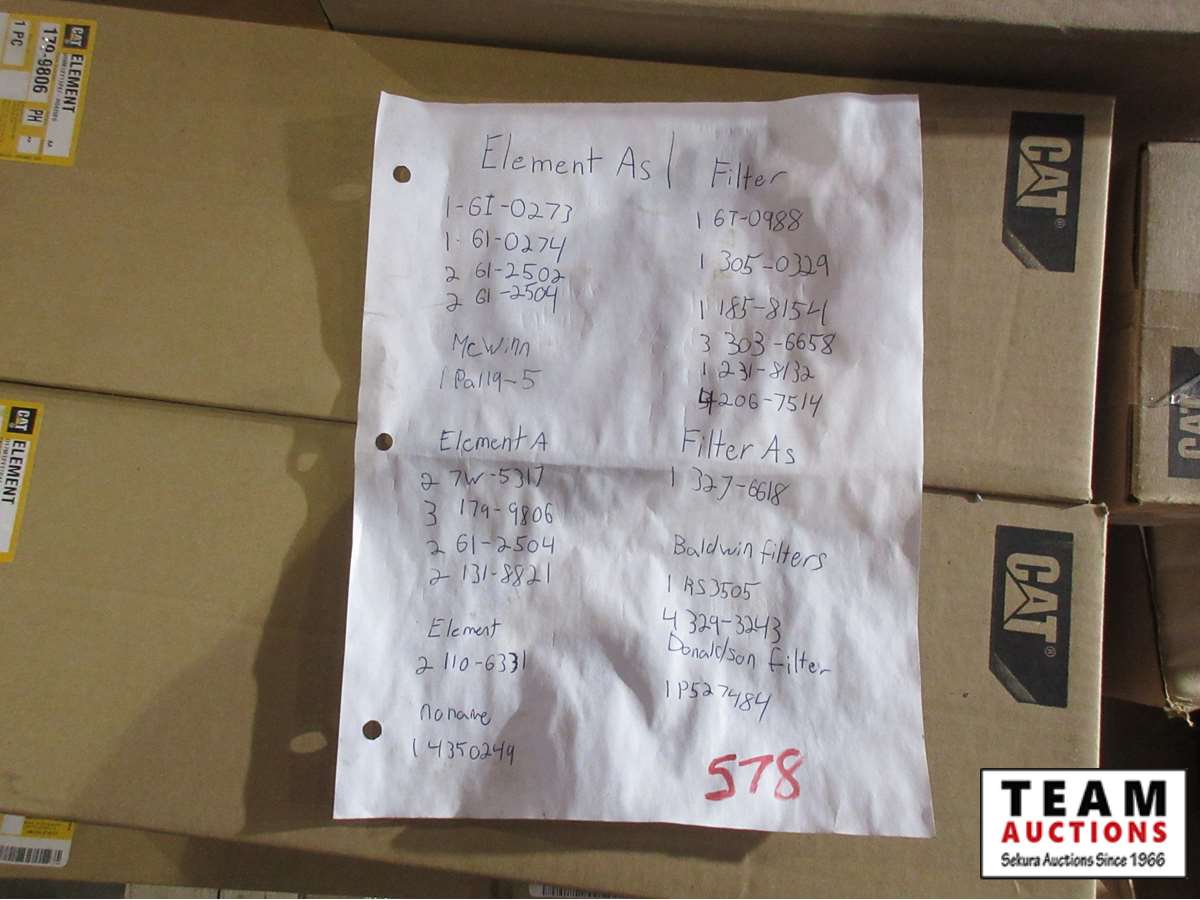 CAT
ELEMENT
179-9806
PH
1 PC
CAT
ELEMENT
Element As
1-6I-0273
1- 61-0274
2 61-2502
2 61-2504
McWinn
1 Pa119-5
Element A
2 7W-5317
3 179-9806
2 61-2504
2 131-8821
Element
2 110-6331
no name
1 4350249
Filter
1 6T-0988
1 305-0329
1 185-8154
3 303-6658
1 231-8132
4 206-7514
Filter As
1 327-6618
Baldwin filters
1 RS3505
4 329-3243
Donaldson filter
1 P527484
578
CAT®
CAT®
CAT
TEAM
AUCTIONS
Sekura Auctions Since 1966